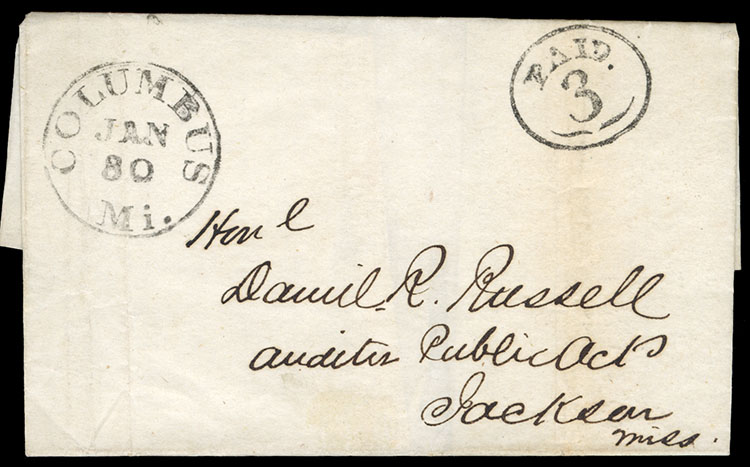 COLUMBUS
JAN
30
Mi.
PAID.
3
Honl
Daniel R. Russell
auditor Public Acts
Jackson
Miss.